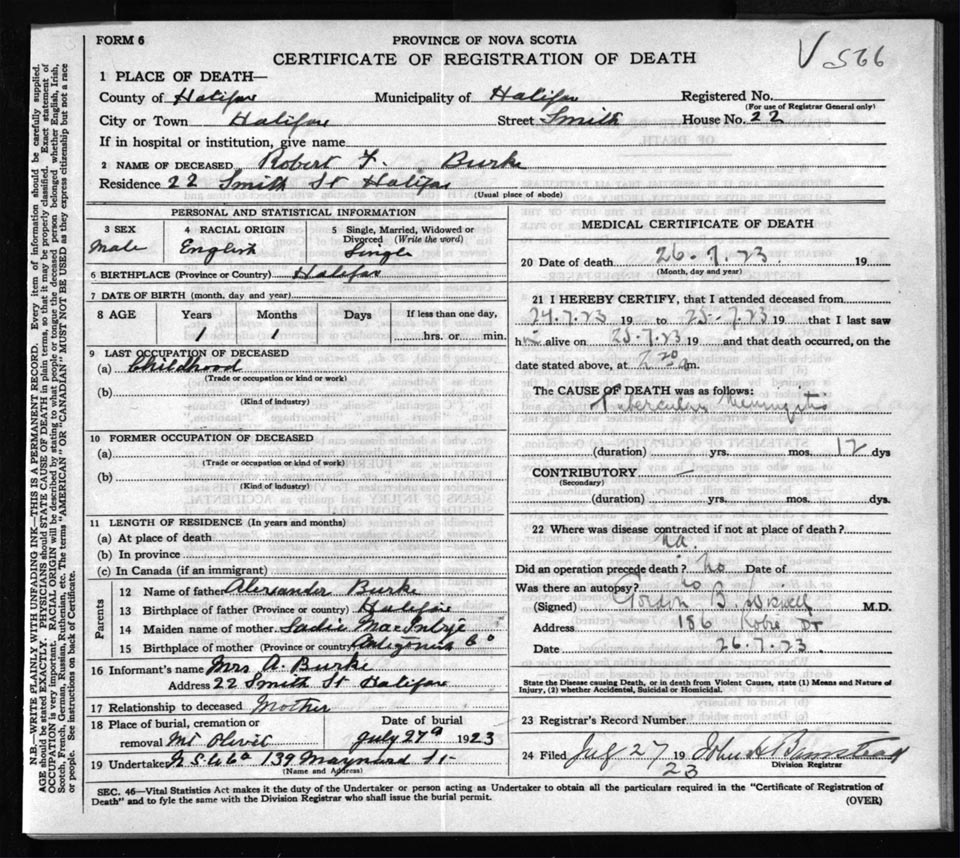 FORM 6
PROVINCE OF NOVA SCOTIA
CERTIFICATE OF REGISTRATION OF DEATH
V 566
1 PLACE OF DEATH—
County of Halifax Municipality of Halifax Registered No.
(For use of Registrar General only)
City or Town Halifax Street Smith House No. 22
If in hospital or institution, give name
2 NAME OF DECEASED Robert F. Burke
Residence 22 Smith St Halifax
(Usual place of abode)
PERSONAL AND STATISTICAL INFORMATION
3 SEX 4 RACIAL ORIGIN 5 Single, Married, Widowed or
Divorced (Write the word)
Male English Single
6 BIRTHPLACE (Province or Country) Halifax
7 DATE OF BIRTH (month, day and year)
8 AGE Years Months Days If less than one day,
1 1 hrs. or min.
9 LAST OCCUPATION OF DECEASED
(a) Childhood
(Trade or occupation or kind or work)
(b)
(Kind of industry)
10 FORMER OCCUPATION OF DECEASED
(a)
(Trade or occupation or kind of work)
(b)
(Kind of industry)
11 LENGTH OF RESIDENCE (In years and months)
(a) At place of death
(b) In province
(c) In Canada (if an immigrant)
Parents
12 Name of father Alexander Burke
13 Birthplace of father (Province or country) Halifax
14 Maiden name of mother Sadie MacIntyre
15 Birthplace of mother (Province or country) Antigonish Co
16 Informant's name Mrs A. Burke
Address 22 Smith St Halifax
17 Relationship to deceased Mother
18 Place of burial, cremation or Date of burial
removal Mt Olivet July 27 1923
19 Undertaker N S U Co 139 Maynard St
(Name and Address)
MEDICAL CERTIFICATE OF DEATH
20 Date of death 26.7.23 19
(Month, day and year)
21 I HEREBY CERTIFY, that I attended deceased from
24.7.23 19 to 25-7.23 19 that I last saw
him alive on 25.7.23 19 and that death occurred, on the
date stated above, at 7 20 m.
The CAUSE OF DEATH was as follows:
Tubercular Meningitis
(duration) yrs. mos. 12 dys
CONTRIBUTORY
(Secondary)
(duration) yrs. mos. dys.
22 Where was disease contracted if not at place of death?
Did an operation precede death? No Date of
Was there an autopsy? No
(Signed) Gordon B. Wiswell M.D.
Address 186 Robie St
Date 26.7.23.
State the Disease causing Death, or in death from Violent Causes, state (1) Means and Nature of
Injury, (2) whether Accidental, Suicidal or Homicidal.
23 Registrar's Record Number
24 Filed July 27 19 23 John H Barnstead
Division Registrar
SEC. 46—Vital Statistics Act makes it the duty of the Undertaker or person acting as Undertaker to obtain all the particulars required in the "Certificate of Registration of
Death" and to fyle the same with the Division Registrar who shall issue the burial permit.
(OVER)
N.B.—WRITE PLAINLY WITH UNFADING INK—THIS IS A PERMANENT RECORD. Every item of information should be carefully supplied.
AGE should be stated EXACTLY. PHYSICIANS should STATE CAUSE OF DEATH in plain terms, so that it may be properly classified. Exact statement of
OCCUPATION is very important. RACIAL ORIGIN will be described by stating to what people or tongue the deceased person belonged whether English, Irish,
Scotch, French, German, Russian, Ruthenian, etc. The terms "AMERICAN" OR "CANADIAN" MUST NOT BE USED as they express citizenship but not a race
or people. See instructions on back of Certificate.